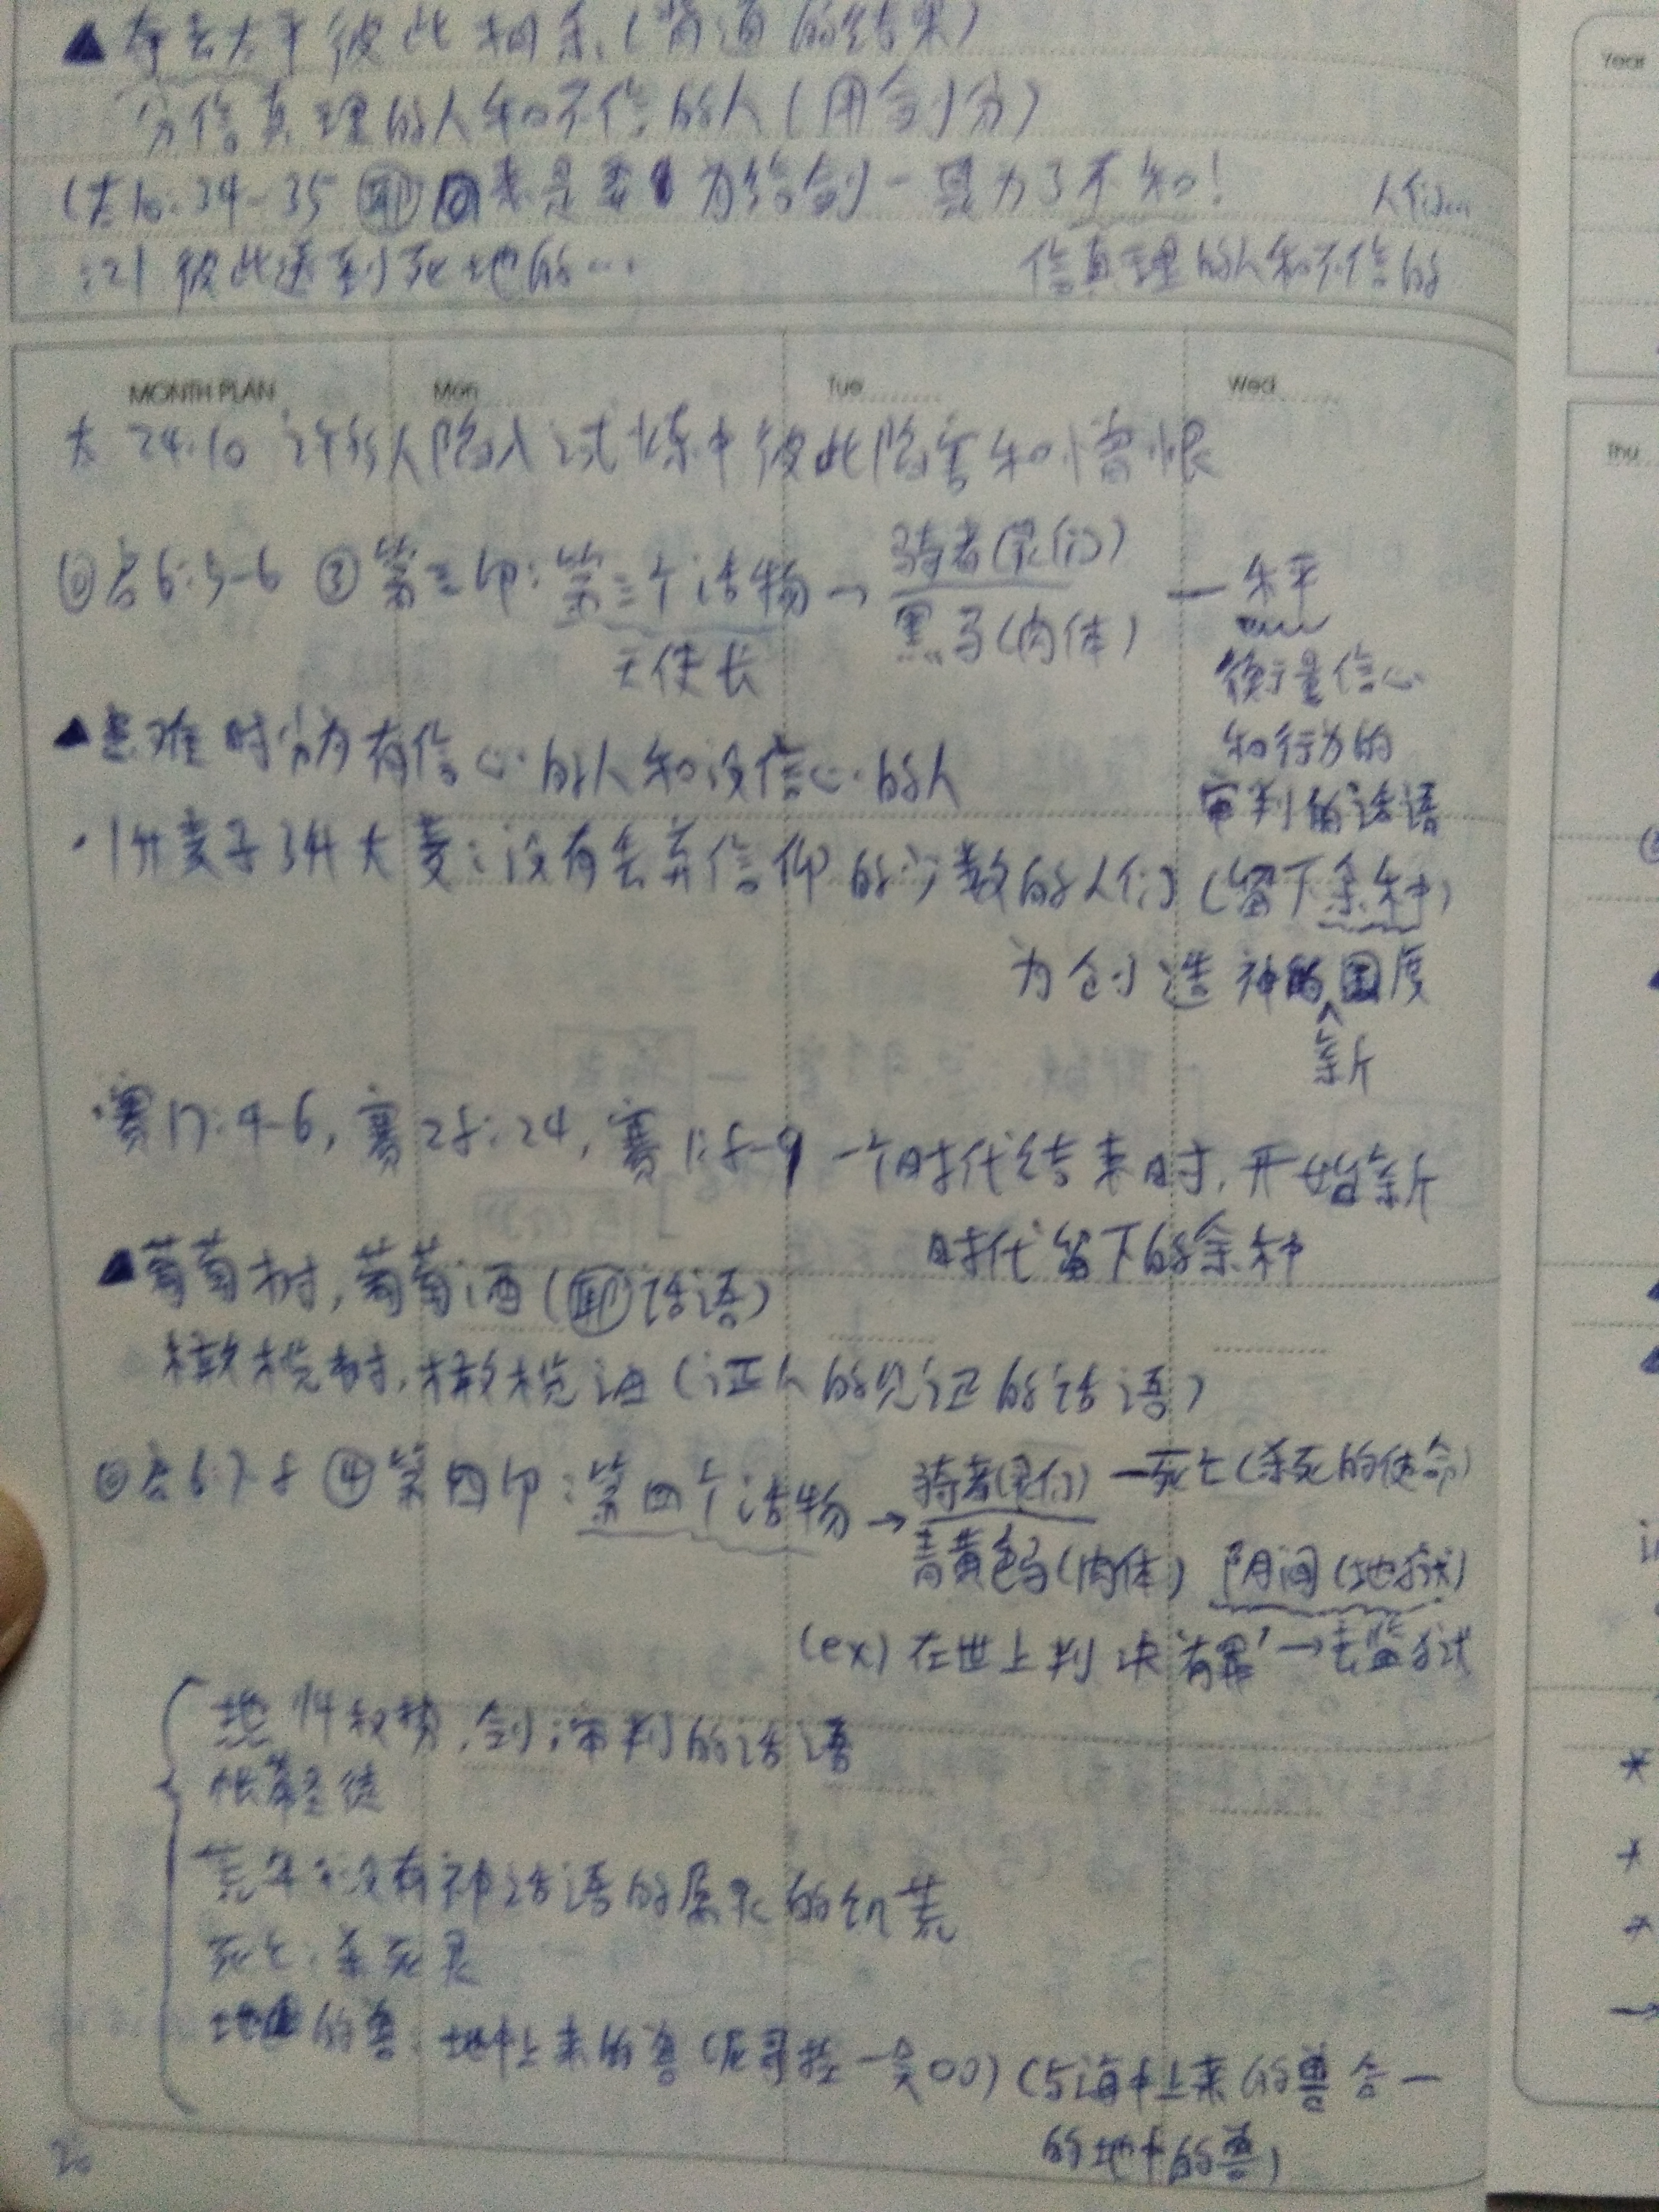 ▲夺去太平彼此相杀(背道的结果)
分信真理的人和不信的人(用剑分)
(太10:34-35 来是要为给剑-真为了不和! 人们…
:21 彼此送到死地的… 信真理的人和不信的
Year
MONTH PLAN Mon Tue Wed
Thu
太 24:10 许多人陷入试炼中彼此陷害和憎恨
◎启6:5-6 ③第三印:第三个活物→骑者(灵们)
黑马(肉体)
—天平
天使长
衡量信心
和行为的
审判的话语
▲患难时分为有信心的人和没信心的人
·1升麦子3升大麦:没有丢弃信仰的少数的人们(留下余种)
为创造神的国度
^
新
·赛17:4-6,赛28:24,赛1:8-9 一个时代结束时,开始新
时代留下的余种
▲葡萄树,葡萄酒(话语)
橄榄树,橄榄油(证人的见证的话语)
◎启6:7-8 ④第四印:第四个活物→骑者(灵们)—死亡(杀死的使命)
青黄色马(肉体) 阴间(地狱)
(ex)在世上判决'有罪'→去监狱
权势,剑:审判的话语
帐幕圣徒
荒年:没有神话语的属灵的饥荒
死亡:杀死灵
地的兽:地中上来的兽(尼哥拉一党○○)(与海中上来的兽合一
的地中的兽)